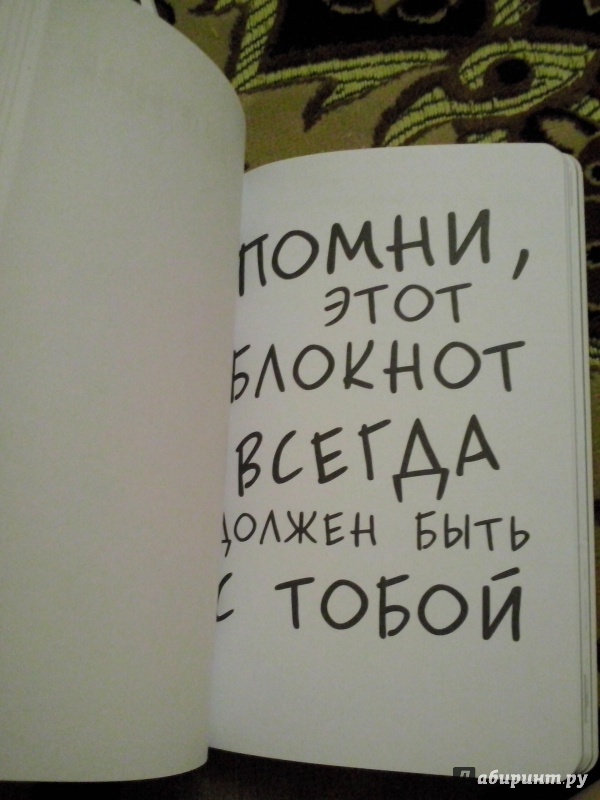 ПОМНИ,
ЭТОТ
БЛОКНОТ
ВСЕГДА
ДОЛЖЕН БЫТЬ
С ТОБОЙ
Лабиринт.ру